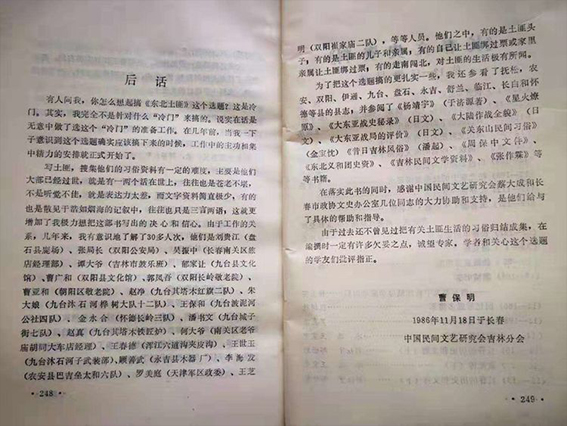 后话
有人问我，你怎么想起搞《东北土匪》这个选题？这是冷
门。其实，我完全不是针对什么“冷门”来搞的。说实在话是
无意中做了选这个“冷门”的准备工作。在几年前，当我一下
子意识到这个选题确实应该搞下来的时候，工作中的主功和集
中精力的安排就正式开始了。
写土匪，搜集他们的习俗资料有一定的难度：主要是他们
大部已经过世，就是有一两个活在世上，往往也是苍老不堪，
不是听觉不佳，就是表达力太差，而文字资料简直极少，有的
也是散见于浩如烟海的记叙中，往往也只是三言两语，这就更
增加了我极力想把这部书写出的决心和信心。由于工作的关
系，几年来，我有意识地了解了30多人次，他们是刘贵江（盘
石县宠场）、张局长（双阳公安局）、吴振中（长春南关区旅
店经理部）、谭大爷（吉林市鼓乐班）、郁家让（九台县文化
馆）、曹广和（双阳县文化馆）、郭凤春（双阳长岭敬老院）、
曹亚和（朝阳区敬老院）、赵峥（九台县其塔木红旗二队）、朱
大娘（九台沐石河桦树大队十二队）、王保和（九台波泥河
公社四队）、金永合（怀德长岭三队）、潘书文（九台城子
街七队）、赵真（九台县其塔木铁匠炉）、何大爷（南关区老爷
庙胡同大车店经理）、王春德（浑江六道沟炮头）、王世玉
（九台沐石河子武装部）、顾善武（永吉县木器厂）、李为发
（农安县巴吉垒太和六队）、罗美庭（天津军区政委）、王艺
·248·
明（双阳崔家庙二队），等等人员。他们之中，有的是土匪头
子，有的是土匪的儿子和亲属，有的自己让土匪绑过票或家里
亲属让土匪绑过票；有的走南闯北，对土匪的生活极有所闻。
为了把这个选题搞的更扎实一些，我还参看了抚松、农
安、双阳、伊通、九台、盘石、永吉、舒兰、临江、长白和怀
德等县的县志，并参阅了《杨靖宇》（于济源著）、《星火燎
原》、《大东亚战史秘录》（日文）、《大陆作战全貌》（日
文）、《大东亚战局的评价》（日文）、《关东山民间习俗》
（金宝忱）、《昔日吉林风俗》（潘起）、《周保中文件》、
《东北义和团史资》、《吉林民间文学资料》、《张作霖》等
等书籍。
在落实此书的同时，感谢中国民间文艺研究会蔡大成和长
春市政协文史办公室几位同志的大力协助和支持，是他们给与
了具体的帮助和指导。
由于过去还不曾见过把有关土匪生活的习俗归结成集，在
编撰时一定有许多欠妥之点，诚望专家、学者和关心这个选题
的学友们批评指正。
曹保明
1986年11月18日于长春
中国民间文艺研究会吉林分会
·249·